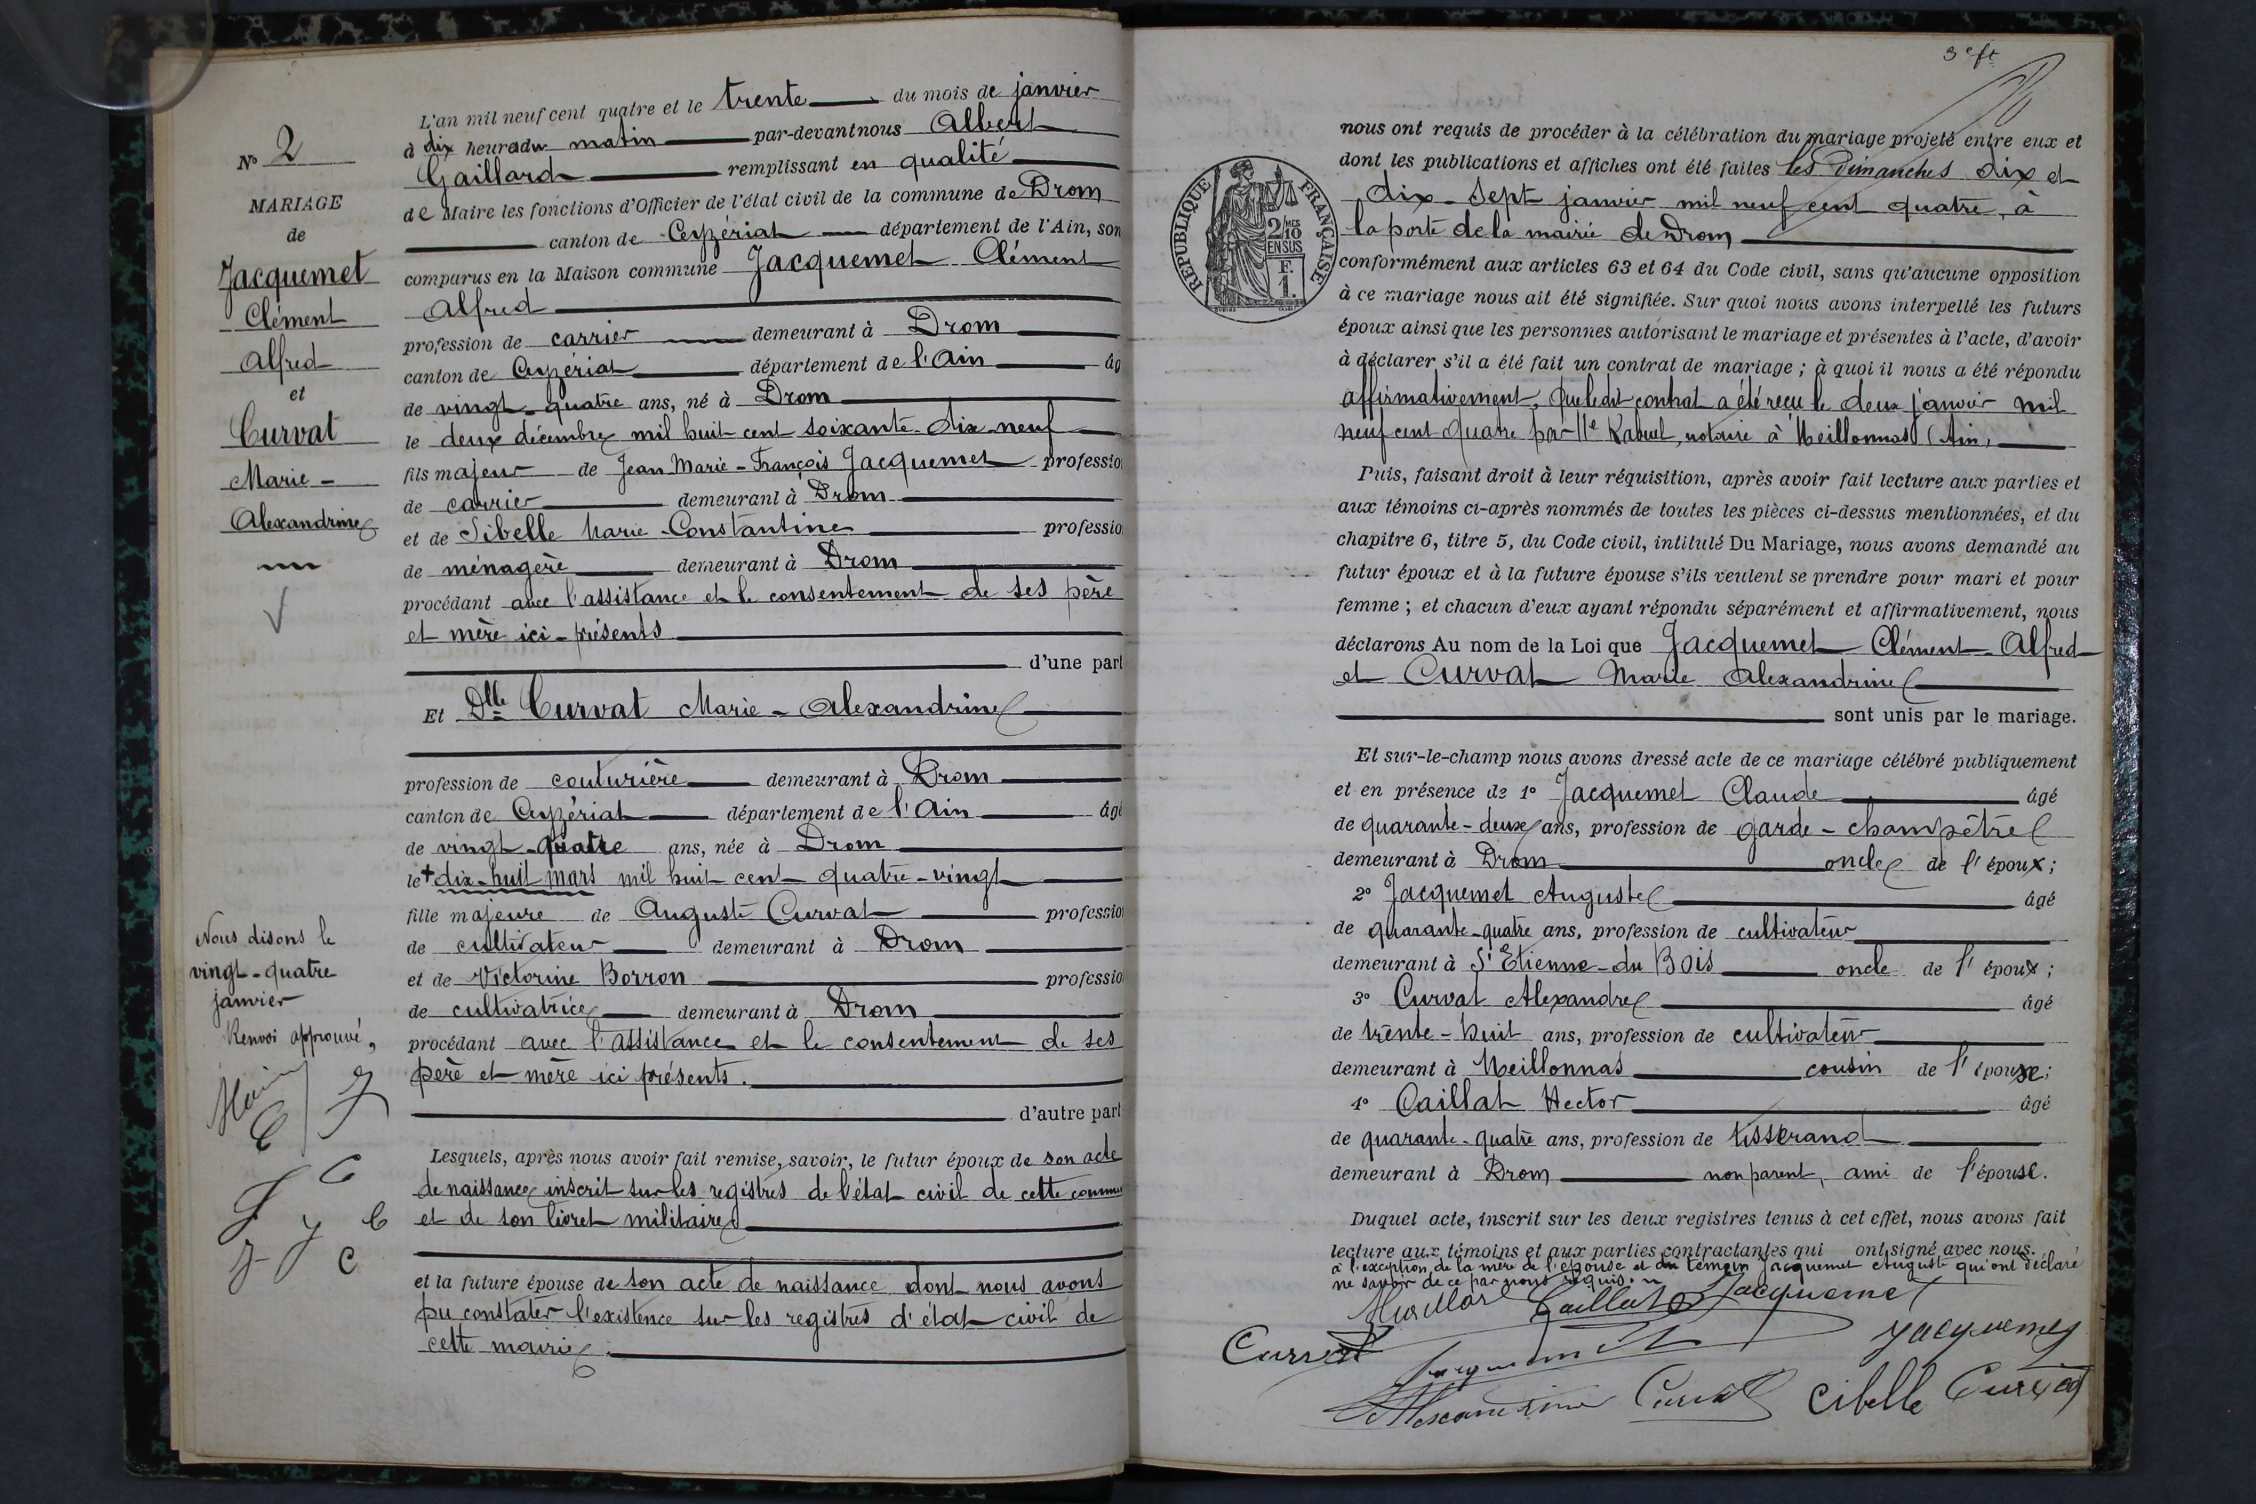 N° 2
MARIAGE
de
Jacquemet
Clément
Alfred
et
Curvat
Marie -
Alexandrine
L'an mil neuf cent quatre et le trente du mois de janvier
à dix heures du matin par-devant nous Albert
Gaillard remplissant en qualité
de Maire les fonctions d'Officier de l'état civil de la commune de Drom
canton de Ceyzériat département de l'Ain, son
comparus en la Maison commune Jacquemet Clément
Alfred
profession de carrier demeurant à Drom
canton de Ceyzériat département de l'Ain âg
de vingt-quatre ans, né à Drom
le deux décembre mil huit cent soixante-dix-neuf
fils majeur de Jean Marie-François Jacquemet professio
de carrier demeurant à Drom
et de Sibelle Marie-Constantine professio
de ménagère demeurant à Drom
procédant avec l'assistance et le consentement de ses père
et mère ici-présents
d'une part
Et Dlle Curvat Marie-Alexandrine
profession de couturière demeurant à Drom
canton de Ceyzériat département de l'Ain âgé
de vingt-quatre ans, née à Drom
le + dix-huit mars mil huit cent quatre-vingt
fille majeure de Auguste Curvat professio
de cultivateur demeurant à Drom
et de Victorine Borron professio
de cultivatrice demeurant à Drom
procédant avec l'assistance et le consentement de ses
père et mère ici présents.
d'autre part
Nous disons le
vingt-quatre
janvier
Renvoi approuvé,
Lesquels, après nous avoir fait remise, savoir, le futur époux de son acte
de naissance inscrit sur les registres de l'état civil de cette commu
et de son livret militaire
et la future épouse de son acte de naissance dont nous avons
pu constater l'existence sur les registres d'état civil de
cette mairie.
3e ft
REPUBLIQUE FRANÇAISE
2/10 MES
EN SUS
F.
1.
nous ont requis de procéder à la célébration du mariage projeté entre eux et
dont les publications et affiches ont été faites les Dimanches dix et
dix-sept janvier mil neuf cent quatre, à
la porte de la mairie de Drom
conformément aux articles 63 et 64 du Code civil, sans qu'aucune opposition
à ce mariage nous ait été signifiée. Sur quoi nous avons interpellé les futurs
époux ainsi que les personnes autorisant le mariage et présentes à l'acte, d'avoir
à déclarer s'il a été fait un contrat de mariage ; à quoi il nous a été répondu
affirmativement, que ledit contrat a été reçu le deux janvier mil
neuf cent quatre par Me notaire à Meillonnas (Ain,
Puis, faisant droit à leur réquisition, après avoir fait lecture aux parties et
aux témoins ci-après nommés de toutes les pièces ci-dessus mentionnées, et du
chapitre 6, titre 5, du Code civil, intitulé Du Mariage, nous avons demandé au
futur époux et à la future épouse s'ils veulent se prendre pour mari et pour
femme ; et chacun d'eux ayant répondu séparément et affirmativement, nous
déclarons Au nom de la Loi que Jacquemet Clément Alfred
et Curvat Marie Alexandrine
sont unis par le mariage.
Et sur-le-champ nous avons dressé acte de ce mariage célébré publiquement
et en présence de 1° Jacquemet Claude âgé
de quarante-deux ans, profession de garde-champêtre
demeurant à Drom oncle de l'époux;
2° Jacquemet Auguste âgé
de quarante-quatre ans, profession de cultivateur
demeurant à St Etienne-du Bois oncle de l'époux;
3° Curvat Alexandre âgé
de trente-huit ans, profession de cultivateur
demeurant à Meillonnas cousin de l'épouse;
4° Caillat Hector âgé
de quarante-quatre ans, profession de tisserand
demeurant à Drom non parent, ami de l'épouse.
Duquel acte, inscrit sur les deux registres tenus à cet effet, nous avons fait
lecture aux témoins et aux parties contractantes qui ont signé avec nous.
à l'exception de la mère de l'épouse et du témoin Jacquemet Auguste qui ont déclaré
ne savoir de ce par nous requis.
Caillat Jacquemet
Curvat Jacquemet
Alexandrine Curvat Cibelle Curvat